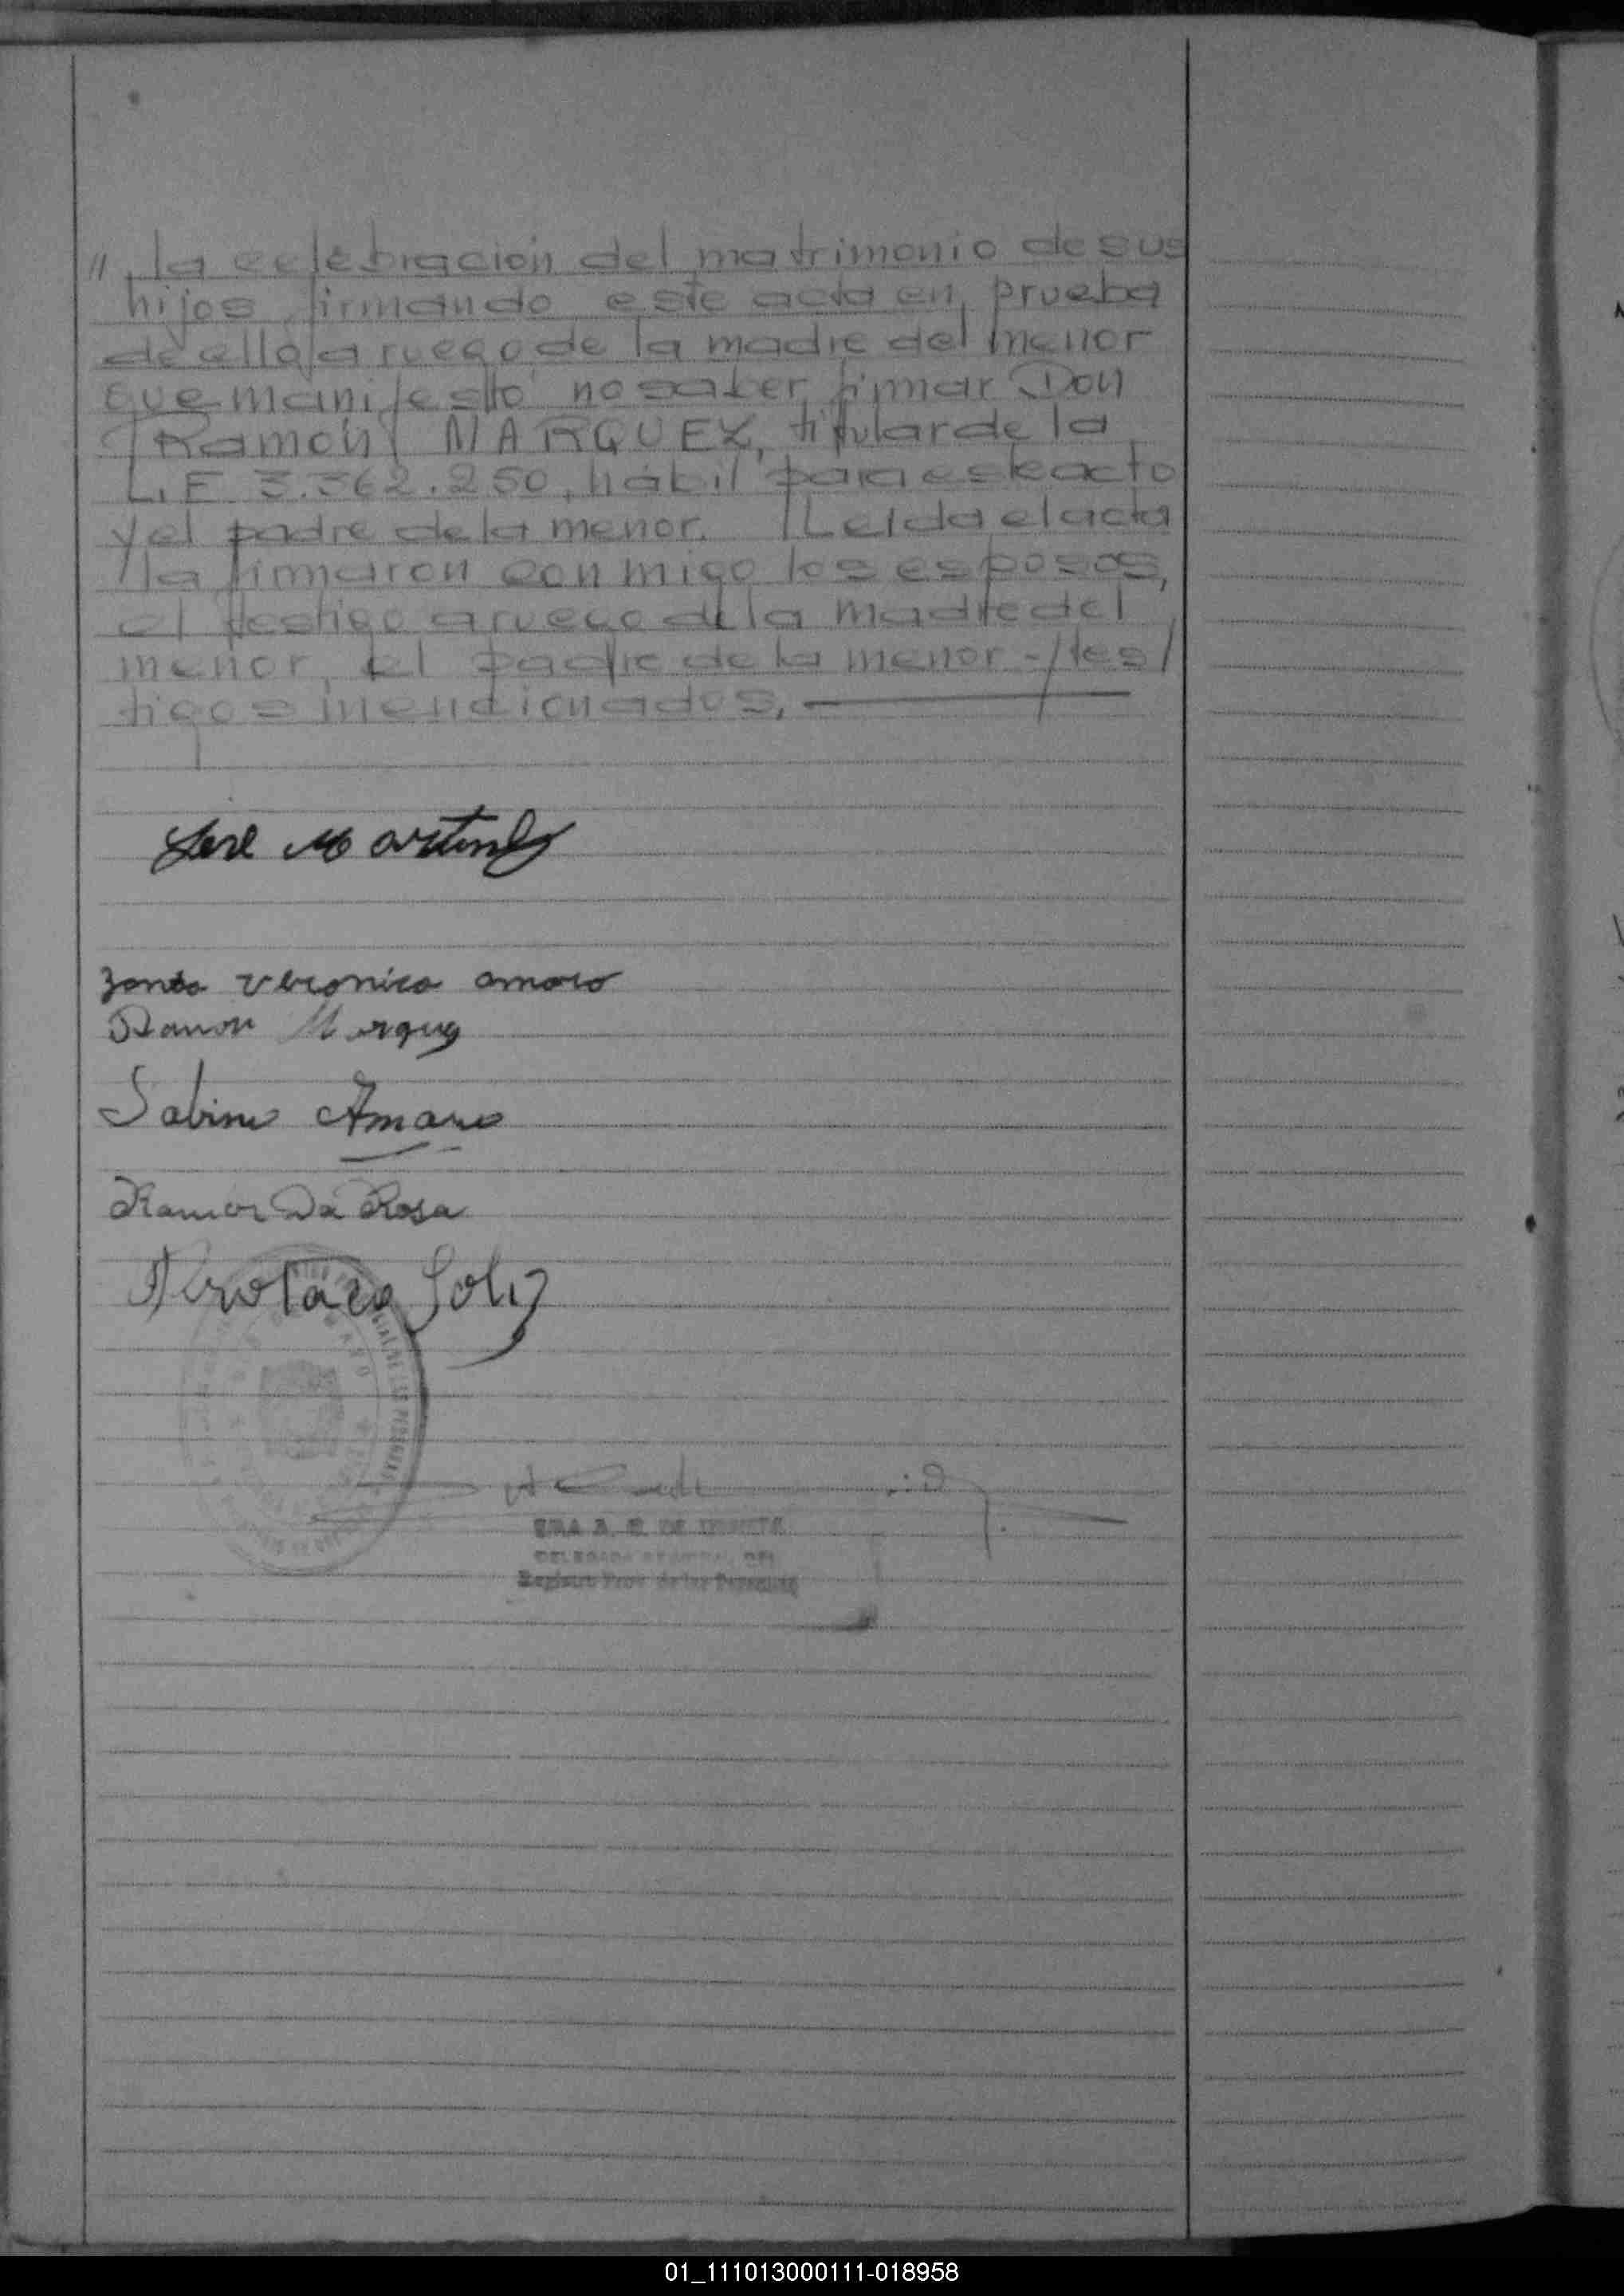 " la celebración del matrimonio de sus
hijos firmando este acta en prueba
de ello, a ruego de la madre del menor
que manifestó no saber firmar Don
Ramón MARQUEZ, titular de la
L.E. 3.362.250, hábil para este acto
y el padre de la menor. Leida el acta
la firmaron conmigo los esposos,
el testigo a ruego de la madre del
menor, el padre de la menor y tes/
tigos mencionados.
José Martinez
Veronica amaro
Ramon Marquez
Sabino Amaro
Ramón Da Rosa
Soliz
DELEGADA
Registro Prov. de las Personas
01_111013000111-018958